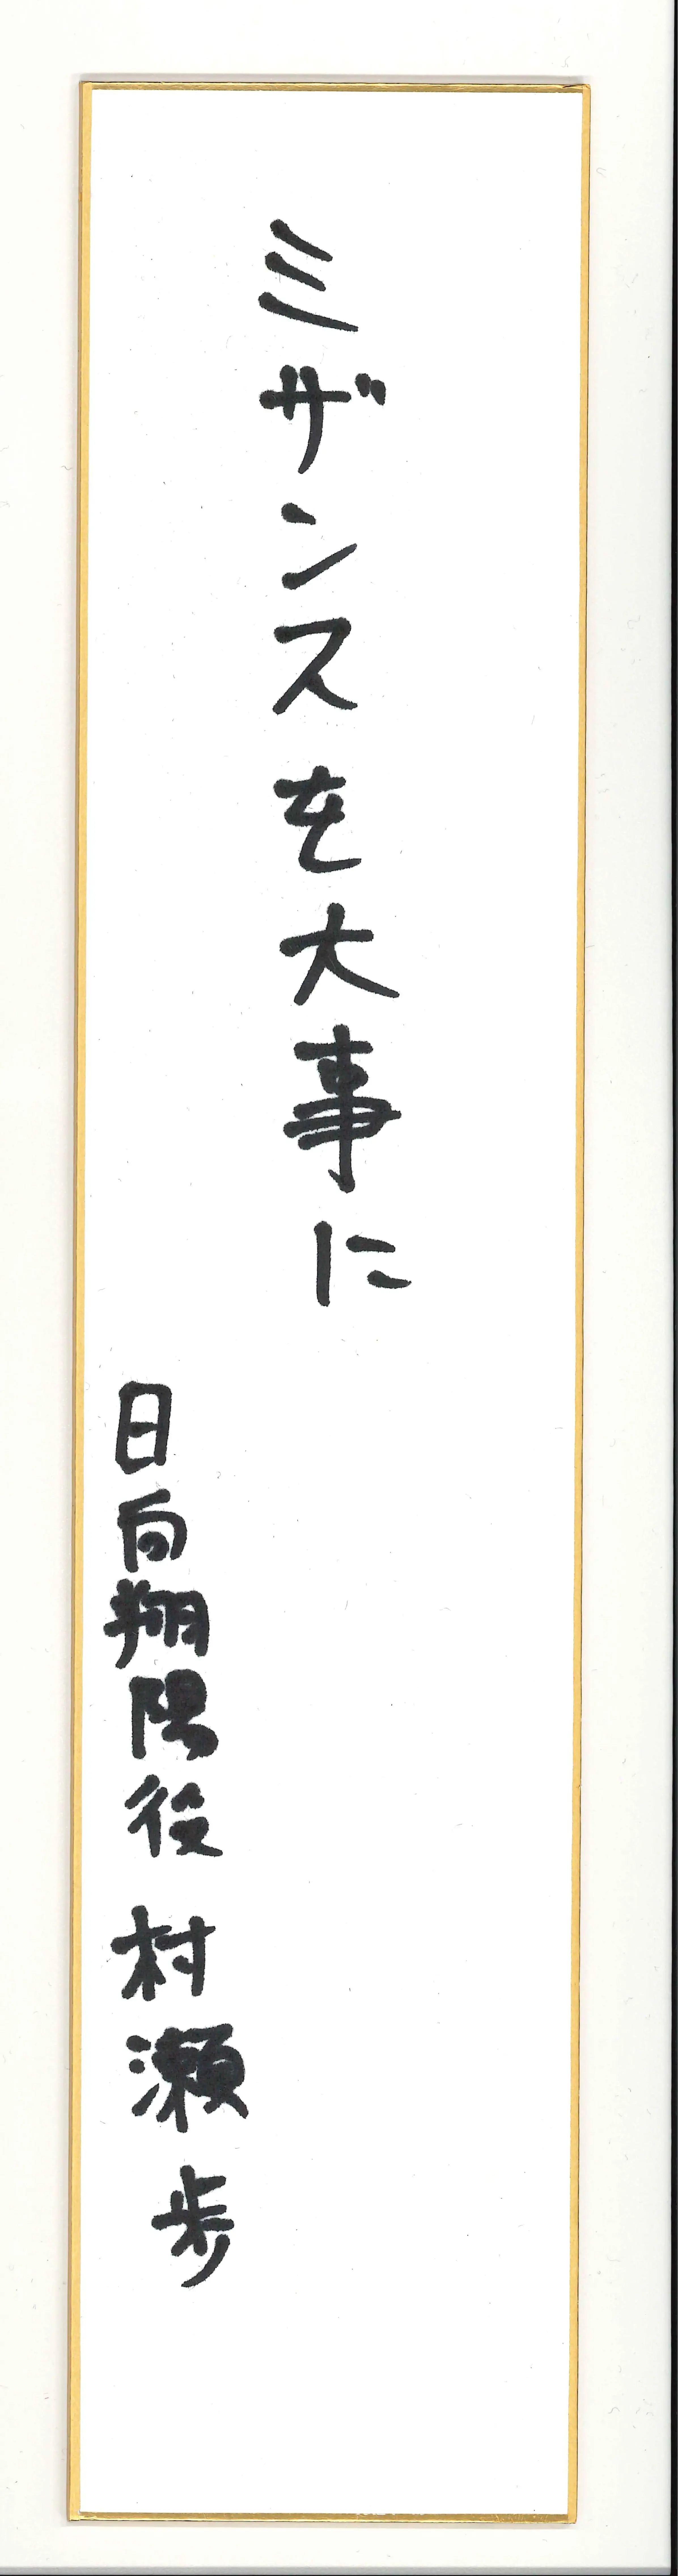 ミザンスを大事に
日向翔陽役 村瀬 歩